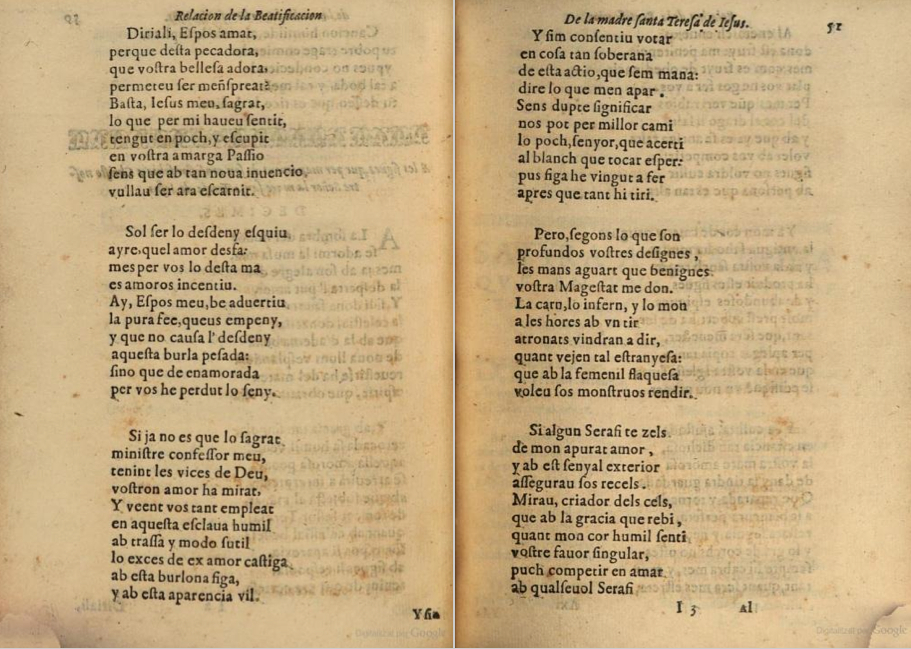 Relacion de la Beatificacion
Diriali, Eſpos amat,
perque deſta pecadora,
que voſtra belleſa adora,
permeteu ſer menſpreat?
Baſta, Ieſus meu, ſagrat,
lo que per mi haueu ſentit,
tengut en poch, y eſcupit
en voſtra amarga Paſſio
ſens que ab tan noua inuencio
vullau ſer ara eſcarnit.
Sol ſer lo deſdeny eſquiu
ayre, quel amor desfa:
mes per vos lo deſta ma
es amoros incentiu.
Ay, Eſpos meu, be aduertiu
la pura fee, queus empeny,
y que no cauſa l' deſdeny
aqueſta burla peſada:
ſino que de enamorada
per vos he perdut lo ſeny.
Si ja no es que lo ſagrat
miniſtre confeſſor meu,
tenint les vices de Deu,
voſtron amor ha mirat,
Y veent vos tant empleat
en aqueſta eſclaua humil
ab traſſa y modo ſutil
lo exces de ex amor caſtiga
ab eſta burlona figa,
y ab eſta aparencia vil.
Y ſim
De la madre ſanta Tereſa de Ieſus.
51
Y ſim conſentiu votar
en coſa tan ſoberana
de eſta actio, que ſem mana:
dire lo que men apar.
Sens dupte ſignificar
nos pot per millor cami
lo poch, ſenyor, que acerti
al blanch que tocar eſper:
pus figa he vingut a fer
apres que tant hi tiri.
Pero, ſegons lo que ſon
profundos voſtres deſignes,
les mans aguart que benignes
voſtra Mageſtat me don.
La carn, lo infern, y lo mon
a les hores ab vn tir
atronats vindran a dir,
quant vejen tal eſtranyeſa:
que ab la femenil flaqueſa
voleu ſos monſtruos rendir.
Si algun Serafi te zels
de mon apurat amor,
y ab eſt ſenyal exterior
aſſegurau ſos recels.
Mirau, criador dels cels,
que ab la gracia que rebi,
quant mon cor humil ſenti
voſtre fauor ſingular,
puch competir en amar
ab qualſeuol Serafi
I 3 Al
Digitalizat per Google
Digitalizat per Google